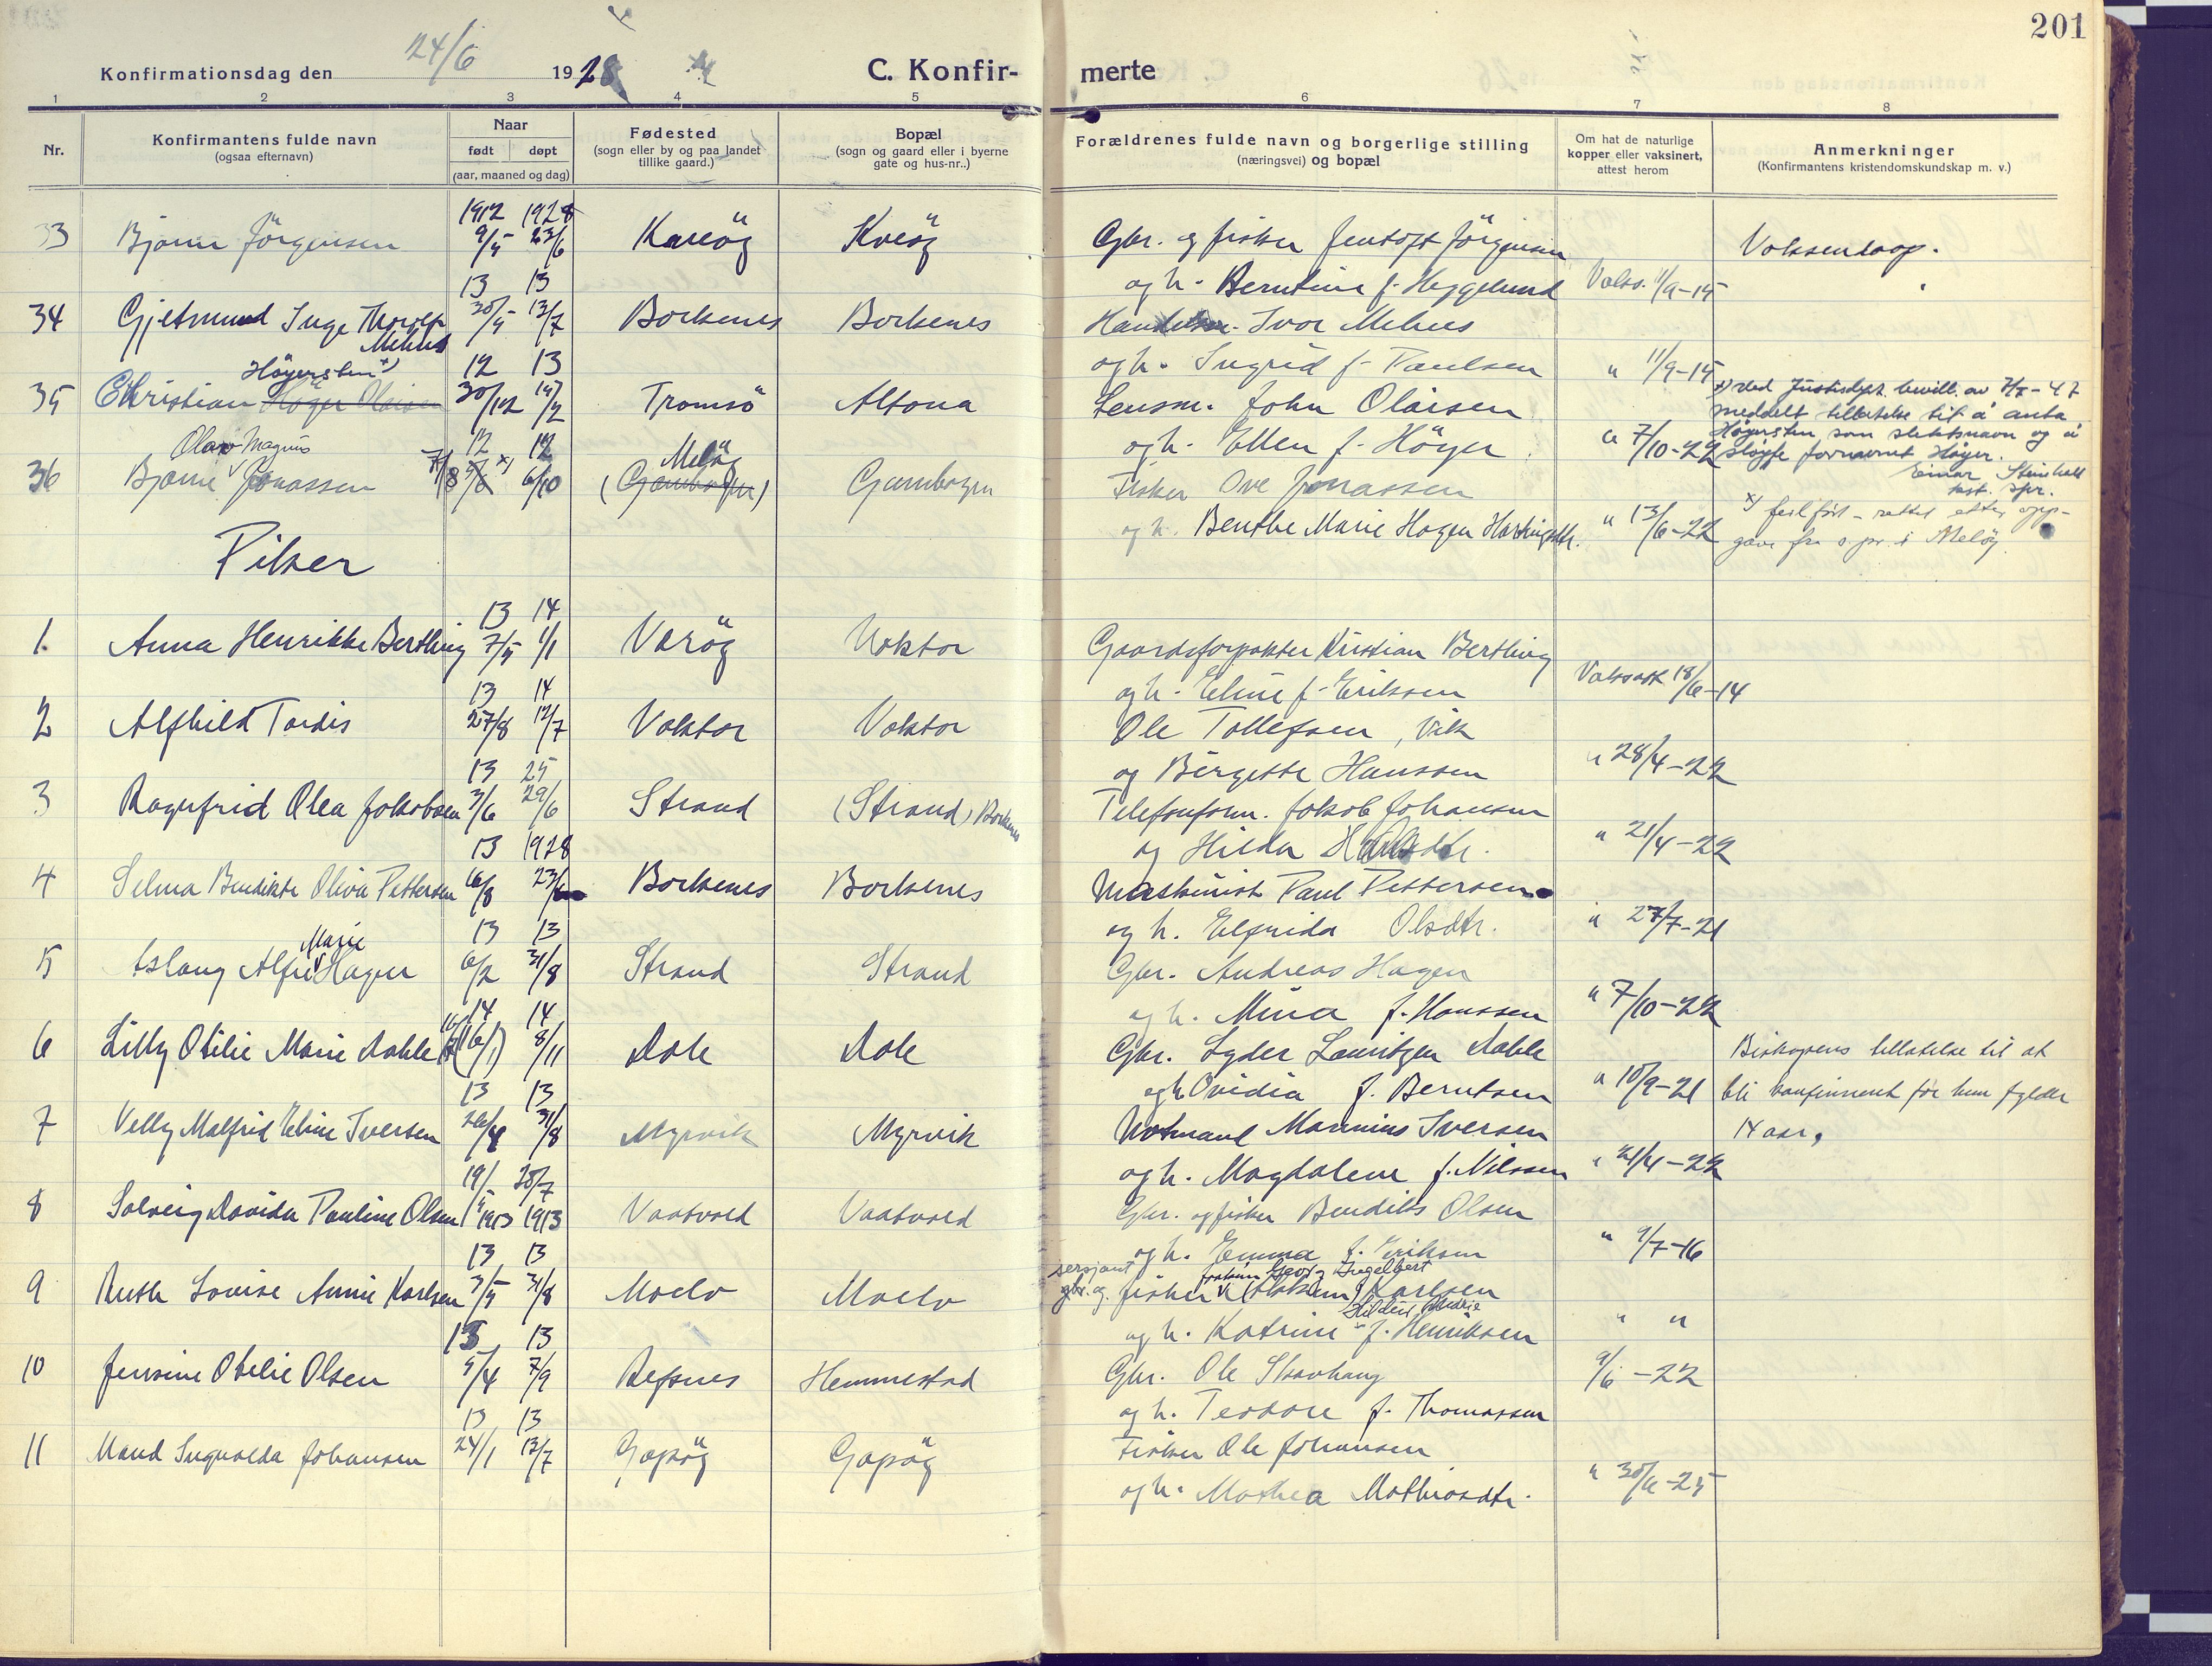 201
Konfirmationsdag den 24/6 1928
C. Konfirmerte
1 2 3 4 5 6 7 8
Nr.
Konfirmantens fulde navn
(ogsaa efternavn)
Naar
født døpt
(aar, maaned og dag)
Fødested
(sogn eller by og paa landet
tillike gaard.)
Bopæl
(sogn og gaard eller i byerne
gate og hus-nr..)
Forældrenes fulde navn og borgerlige stilling
(næringsvei) og bopæl
Om hat de naturlige
kopper eller vaksinert,
attest herom
Anmerkninger
(Konfirmantens kristendomskundskap m. v.)
1912 1928
33 Bjarne Jörgensen 9/5 23/6 Kveöy Kveöy Gbr. og fisker Jentoft Jörgensen Voksendaap.
og h. Berntine f. Heggelund Vaks. 11/9-15
13 13
34 Gjetmund Inge Thorolf Mehus 30/4 13/7 Borkenes Borkenes Handelsm. Ivar Mehus
og h. Ingrid f. Paulsen " 11/9-15
Höyersten x) 12 13
35 Christian Höyer Olaisen 30/12 Tromsö Altona Lensm. John Olaisen
og h. Ellen f. Höyer " 7/10-22
x) ved Justisdept. bevill. av 7/5-47
meddelt tillatelse til å anta
Höyersten som slektsnavn og å
sløyfe fornavnet Höyer.
Einar Steinhell
kst. spr.
Olav Magnus 12 12
36 Bjarne Jonassen 7/8 x) 6/10 Melöy (Gambogen) Gambogen Fisker Ove Jonassen
og h. Benthe Marie Hagen Hartvigsdtr. " 13/6-22
x) feilført - rettet etter opp-
gave fra s.pr. i Meløy.
Piker
13 14
1. Anna Henrikke Bertling 7/5 1/1 Veröy Voktor Gaardsforpakter Kristian Bertling
og h. Eline f. Eriksen Vaksatt 18/6-14
13 14
2 Alfhild Tordis 27/8 12/7 Voktor Voktor Ole Tollefsen, Vik
og Bergitte Hanssen " 28/4-22
13 25
3 Ragnfrid Olea Jakobsen 3/6 29/6 Strand (Strand) Borkenes Telefonform. Jakob Johansen
og Hilda " 21/4-22
13 1928
4 Selma Bendikte Oliva Pettersen 6/8 23/6 Borkenes Borkenes Maskinist Paul Pettersen
og h. Elfrida Olsdtr. " 27/7-21
Marie 13 13
5 Aslaug Alfre Hagen 6/2 31/8 Strand Strand Gbr. Andreas Hagen
og h. Mina f. Hanssen " 7/10-22
14 14
6 Lilly Otilie Marie Dahle (16/1) 8/11 Dale Dale Gbr. Lyder Lauritzen Dahle
og h Ovidia f. Berntsen " 10/9-21
Biskopens tillatelse til at
bli konfirmert før hun fylder
14 aar.
13 13
7 Velly Malfrid Eline Iversen 26/4 31/8 Myrvik Myrvik Notmand Marinius Iversen
og h. Magdalene f. Nilssen " 21/4-22
19/5 20/7
8 Solveig Davida Pauline Olsen 1913 1913 Vaatvold Vaatvold Gbr. og fisker Bendiks Olsen
og h. Emma f. Eriksen " 9/7-16
13 13
9 Ruth Lovise Annie Karlsen 3/5 31/8 Moelv Moelv sersjant gbr. og fisker Georg Ingelbert Karlsen
og h. Katrine f. Henriksen " "
13 13
10 Jensine Otelie Olsen 5/4 7/9 Refsnes Hemmestad Gbr. Ole Skovhaug
og h. Teodore f. Thomassen 9/6-22
13 13
11 Maud Ingvalda Johansen 24/1 13/7 Gapöy Gapöy Fisker Ole Johansen
og h. Mathea Mathiasdtr. " 30/6-25